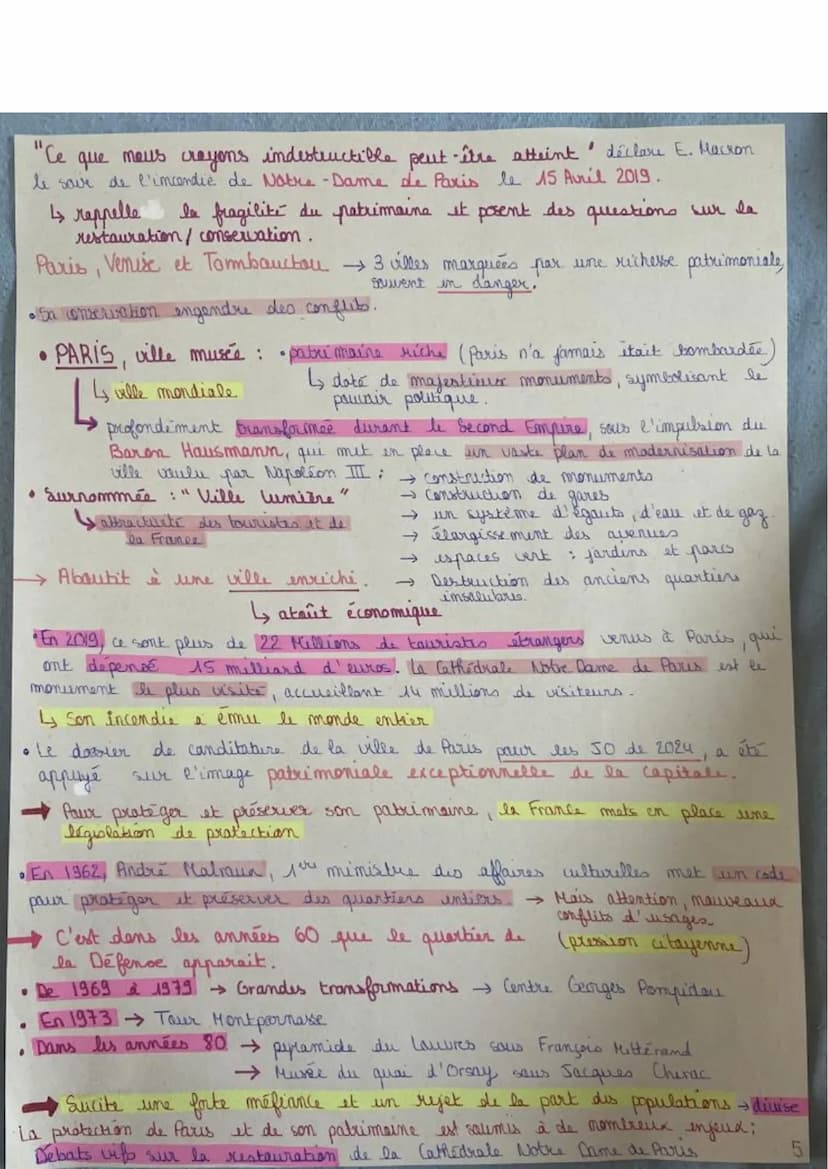 "Ce que nous croyons indestructible peut-être atteint" déclare E. Macron
le soir de l'incendie de Notre-Dame de Paris le 15 Avril 2019.
↳ rappelle la fragilité du patrimoine et posent des questions sur la
restauration/conservation.
Paris, Venise et Tombouctou → 3 villes marquées par une richesse patrimoniale,
souvent en danger.
• Sa conservation engendre des conflits.
• PARIS, ville musée : • patrimoine riche (Paris n'a jamais était bombardée)
↳ ville mondiale ↳ doté de majestieux monuments, symbolisant le
pouvoir politique.
↳ profondément transformée durant le Second Empire, sous l'impulsion du
Baron Hausmann, qui met en place un vaste plan de modernisation de la
ville voulu par Napoléon III : → construction de monuments
• Surnommée : "Ville Lumière" → Construction de gares
↳ attractivité des touristes et de → un système d'égouts, d'eau et de gaz
la France → élargissement des avenues
→ espaces vert : jardins et parcs
→ Aboutit à une ville enrichi. → Destruction des anciens quartiers
insalubres.
↳ atoût économique
• En 2019, ce sont plus de 22 Millions de touristes étrangers venus à Paris, qui
ont dépensé 15 milliard d'euros. La Cathédrale Notre Dame de Paris est le
monument le plus visité, accueillant 14 millions de visiteurs.
↳ Son incendie a ému le monde entier
• Le dossier de canditature de la ville de Paris pour les JO de 2024, a été
appuyé sur l'image patrimoniale exceptionnelle de la capitale.
→ Pour protéger et préserver son patrimoine, la France mets en place une
législation de protection
• En 1962, André Malraux, 1er ministre des affaires culturelles met un code
pour protéger et préserver des quartiers entiers. → Mais attention, nouveaux
conflits d'usages
→ C'est dans les années 60 que le quartier de (pression citoyenne)
la Défense apparait.
• De 1969 à 1979 → Grandes transformations → Centre Georges Pompidou
• En 1973 → Tour Montparnasse
• Dans les années 80 → pyramide du Louvres sous François Mittérand
→ Musée du quai d'Orsay sous Jacques Chirac
→ Sucite une forte méfiance et un rejet de la part des populations → divise
La protection de Paris et de son patrimoine est soumis à de nombreux enjeux :
Débats vifs sur la restauration de la Cathédrale Notre Dame de Paris
5